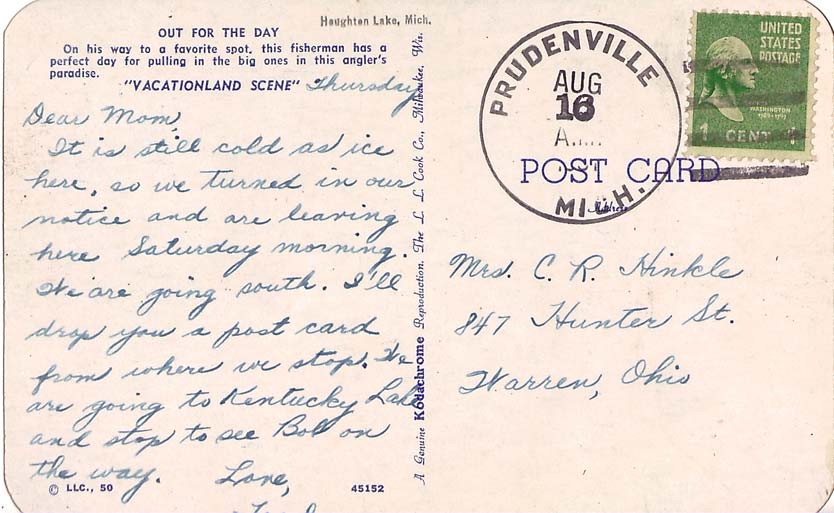 Houghton Lake, Mich.
OUT FOR THE DAY
On his way to a favorite spot, this fisherman has a
perfect day for pulling in the big ones in this angler's
paradise.
"VACATIONLAND SCENE"
Thursday
Dear Mom,
It is still cold as ice
here, so we turned in our
notice and are leaving
here Saturday morning.
We are going south. I'll
drop you a post card
from where we stop. We
are going to Kentucky Lake
and stop to see Bob on
the way. Love,
© LLC., 50
45152
A Genuine Kodachrome Reproduction. The L. L. Cook Co., Milwaukee, Wis.
PRUDENVILLE
AUG
16
MICH.
UNITED
STATES
POSTAGE
WASHINGTON
1789-1797
1 CENT 1
POST CARD
Address
Mrs. C. R. Hinkle
847 Hunter St.
Warren, Ohio